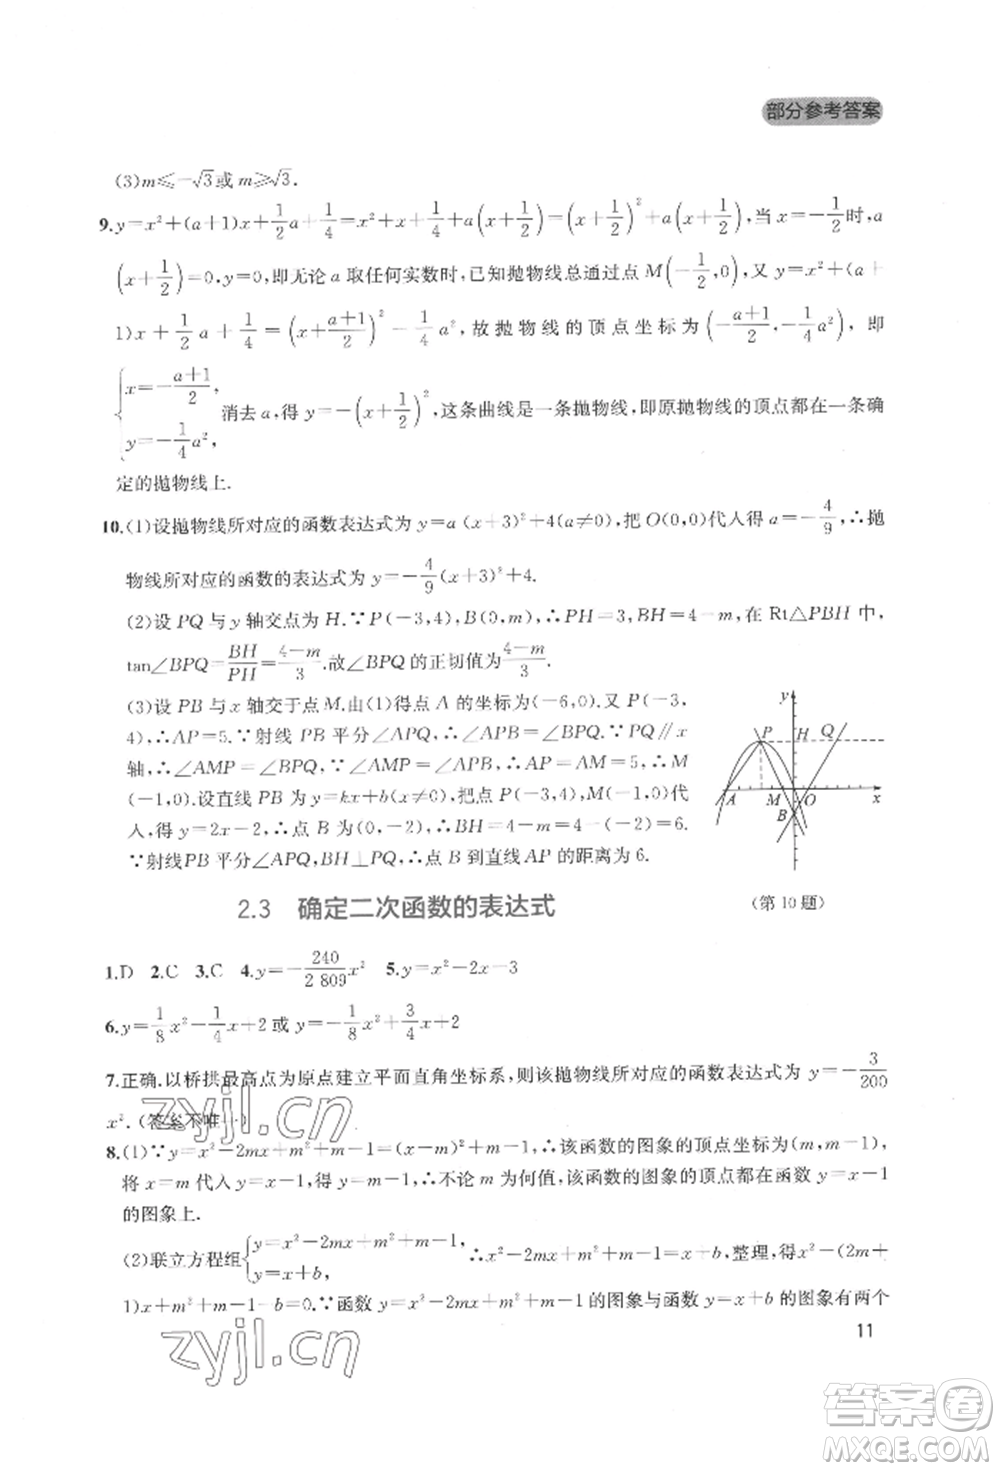 部分参考答案
(3)m≤-√3或m≥√3.
9.y=x²+(a+1)x+1/2a+1/4=x²+x+1/4+a(x+1/2)=(x+1/2)²+a(x+1/2),当x=-1/2时,a
(x+1/2)=0,y=0,即无论a取任何实数时,已知抛物线总通过点M(-1/2,0),又y=x²+(a+
1)x+1/2a+1/4=(x+(a+1)/2)²-1/4a²,故抛物线的顶点坐标为(-(a+1)/2,-1/4a²),即
{x=-(a+1)/2, y=-1/4a², 消去a,得y=-(x+1/2)²,这条曲线是一条抛物线,即原抛物线的顶点都在一条确
定的抛物线上.
10.(1)设抛物线所对应的函数表达式为y=a(x+3)²+4(a≠0),把O(0,0)代人得a=-4/9,∴抛
物线所对应的函数的表达式为y=-4/9(x+3)²+4.
(2)设PQ与y轴交点为H.∵P(-3,4),B(0,m),∴PH=3,BH=4-m,在Rt△PBH中,
tan∠BPQ=BH/PH=(4-m)/3.故∠BPQ的正切值为(4-m)/3.
(3)设PB与x轴交于点M.由(1)得点A的坐标为(-6,0).又P(-3,
4),∴AP=5.∵射线PB平分∠APQ,∴∠APB=∠BPQ.∵PQ∥x
轴,∴∠AMP=∠BPQ.∴∠AMP=∠APB,∴AP=AM=5.∴M
(-1,0).设直线PB为y=kx+b(k≠0),把点P(-3,4),M(-1,0)代
人,得y=-2x-2,∴点B为(0,-2),∴BH=4-m=4-(-2)=6.
∵射线PB平分∠APQ,BH⊥PQ,∴点B到直线AP的距离为6.
y
P H Q
A M O x
B
(第10题)
2.3 确定二次函数的表达式
1.D 2.C 3.C 4.y=-240/2 809x² 5.y=x²-2x-3
6.y=1/8x²-1/4x+2或y=-1/8x²+3/4x+2
7.正确.以桥拱最高点为原点建立平面直角坐标系,则该抛物线所对应的函数表达式为y=-3/200
x².(答案不唯一)
8.(1)∵y=x²-2mx+m²+m-1=(x-m)²+m-1,∴该函数的图象的顶点坐标为(m,m-1),
将x=m代入y=x-1,得y=m-1,∴不论m为何值,该函数的图象的顶点都在函数y=x-1
的图象上.
(2)联立方程组{y=x²-2mx+m²+m-1, y=x+b, ∴x²-2mx+m²+m-1=x+b,整理,得x²-(2m+
1)x+m²+m-1-b=0.∵函数y=x²-2mx+m²+m-1的图象与函数y=x+b的图象有两个
11
zyjl.cn
zyjl.cn
答案圈
MXQE.COM